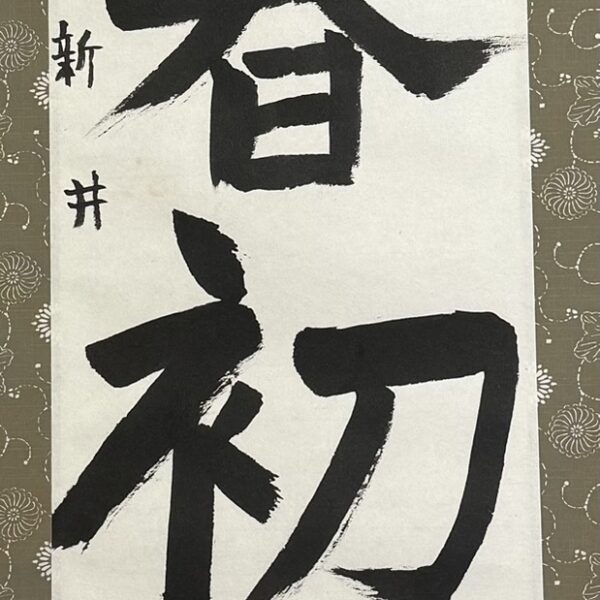 春初
新井